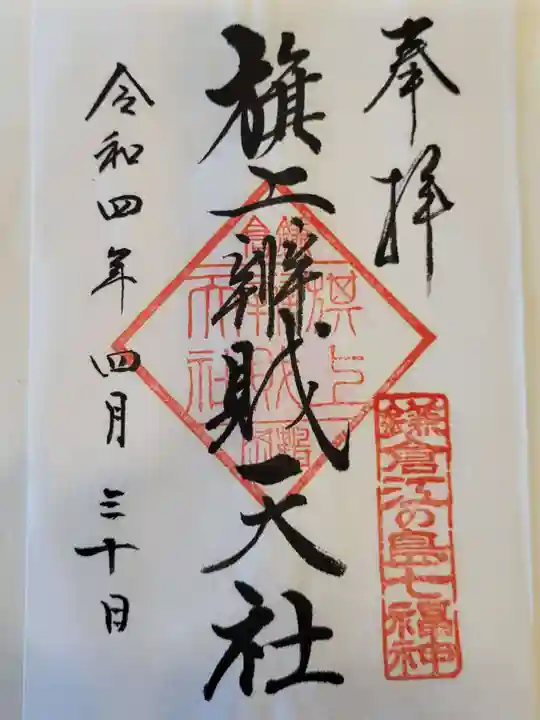 奉拝
鎌倉江の島七福神
旗上辨財天社
旗上
天社
令和四年四月三十日